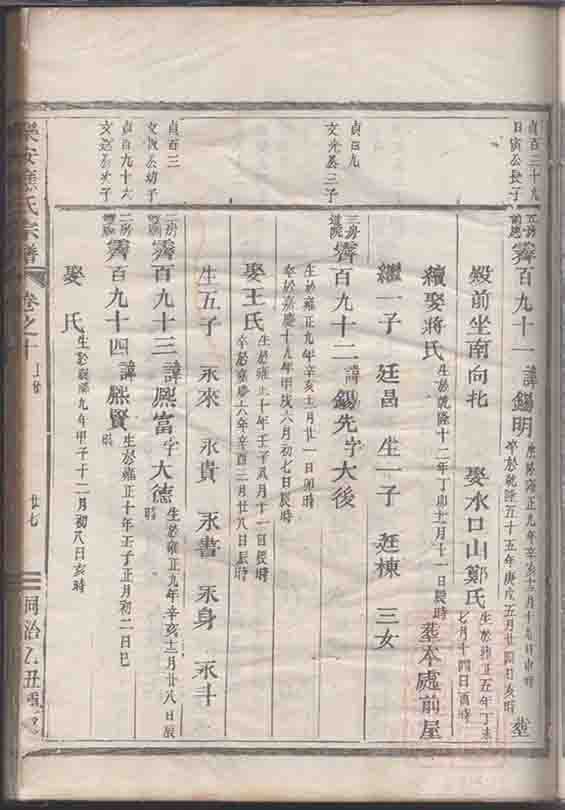 貞百三十九
日寅公長子
五房
霽百九十一 諱錫明 生於雍正九年辛亥十二月十九日申時
卒於乾隆五十五年庚戌五月廿四日亥時 塟
殿前坐南向北 娶水口山鄭氏 生於雍正五年丁未
七月十四日酉時
續娶蔣氏 生於乾隆十二年丁卯十一月十一日辰時 塟本處前屋
繼一子 廷昌 生一子 廷棟 三女
貞百九
文光公三子
三房
霽百九十二 諱錫先字大後
生於雍正九年辛亥十二月廿一日卯時
卒於嘉慶十九年甲戌六月初七日辰時
娶王氏 生於雍正十年壬子八月十一日辰時
卒於嘉慶六年辛酉三月廿八日辰時
生五子 永來 永貴 永書 永身 永斗
貞百三
公幼子
二房
霽百九十三 諱熙富字大德 生於雍正九年辛亥十二月廿八日辰
時
貞百九十六
公次子
二房
霽百九十四 諱熙賢 生於雍正十年壬子正月初二日巳
時
娶 氏 生於乾隆九年甲子十二月初八日亥時
樂安應氏宗譜 卷之十 廿七 同治乙丑重